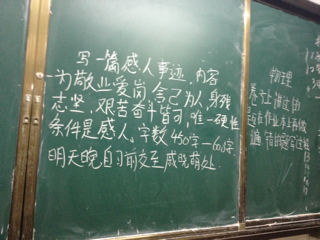 写一篇感人事迹，内容
为敬业爱岗，舍己为人，身残
志坚，艰苦奋斗皆可，唯一硬性
条件是感人。字数450字—600字。
明天晚自习前交至咸晓萌处
物理
卷子上讲过的
作业本上再做
一遍